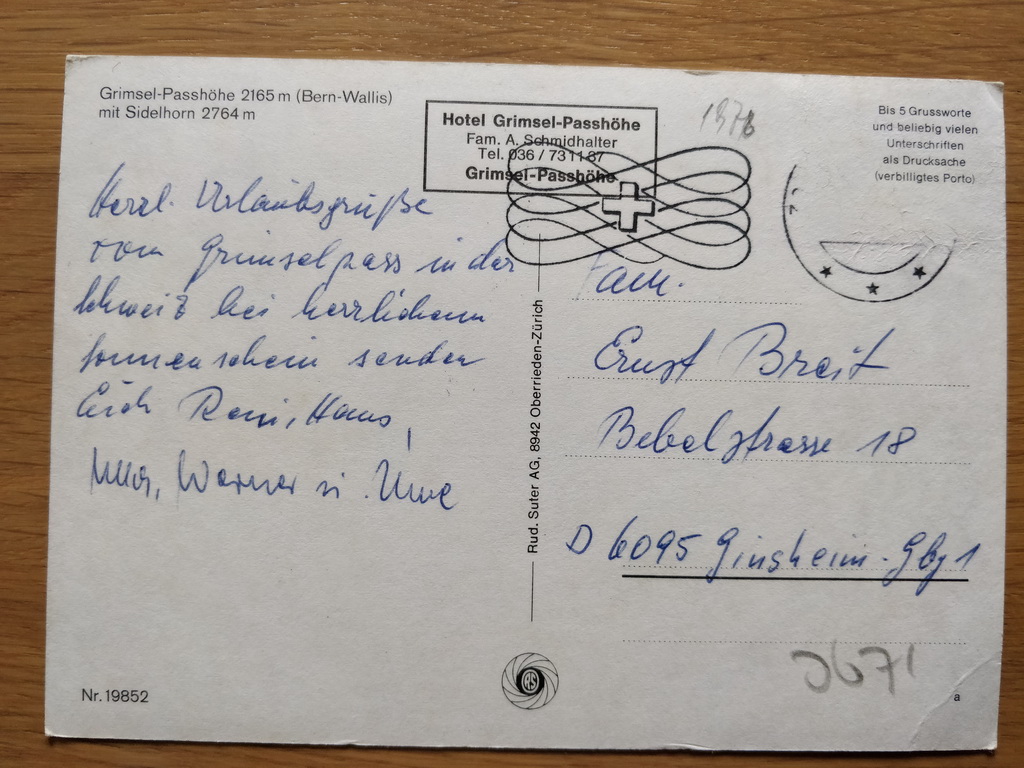 Grimsel-Passhöhe 2165 m (Bern-Wallis)
mit Sidelhorn 2764 m
Hotel Grimsel-Passhöhe
Fam. A. Schmidhalter
Tel. 036 / 73 11 87
Grimsel-Passhöhe
1976
Bis 5 Grussworte
und beliebig vielen
Unterschriften
als Drucksache
(verbilligtes Porto)
Herzl. Urlaubsgrüße
vom Grimselpass in der
Schweiz bei herrlichem
Sonnenschein senden
Euch Reni, Hans,
Werner u. Uwe
Rud. Suter AG, 8942 Oberrieden-Zürich
Fam.
Ernst Breit
Bebelstrasse 18
D 6095 Ginsheim-Gbg 1
RS
Nr. 19852
a